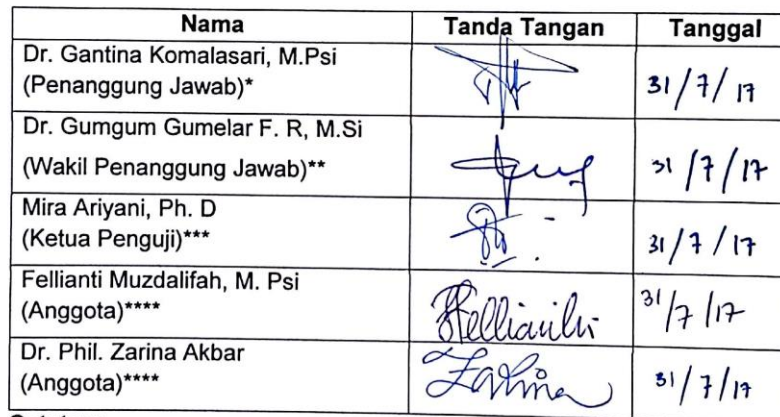 Nama Tanda Tangan Tanggal
Dr. Gantina Komalasari, M.Psi
(Penanggung Jawab)* 31/7/17
Dr. Gumgum Gumelar F. R, M.Si
(Wakil Penanggung Jawab)** 31/7/17
Mira Ariyani, Ph. D
(Ketua Penguji)*** 31/7/17
Fellianti Muzdalifah, M. Psi
(Anggota)**** Fellianti 31/7/17
Dr. Phil. Zarina Akbar
(Anggota)**** Zarina 31/7/17